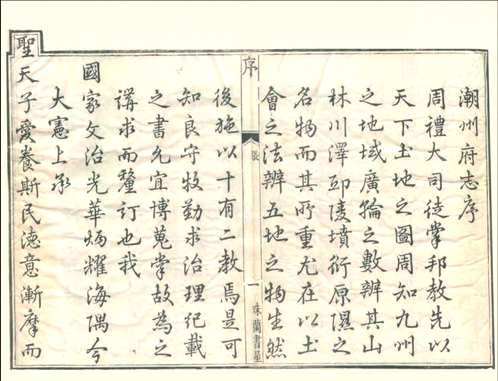 潮州府志序
周禮大司徒掌邦教先以
天下土地之圖周知九州
之地域廣輪之數辨其山
林川澤邱陵墳衍原隰之
名物而其所重尤在以土
會之法辨五地之物生然
序
一
珠蘭書屋
後施以十有二教焉是可
知良守牧勤求治理紀載
之書允宜博蒐掌故為之
講求而釐訂也我
國家文治光華炳耀海隅今
大憲上承
聖天子愛養斯民德意漸摩而